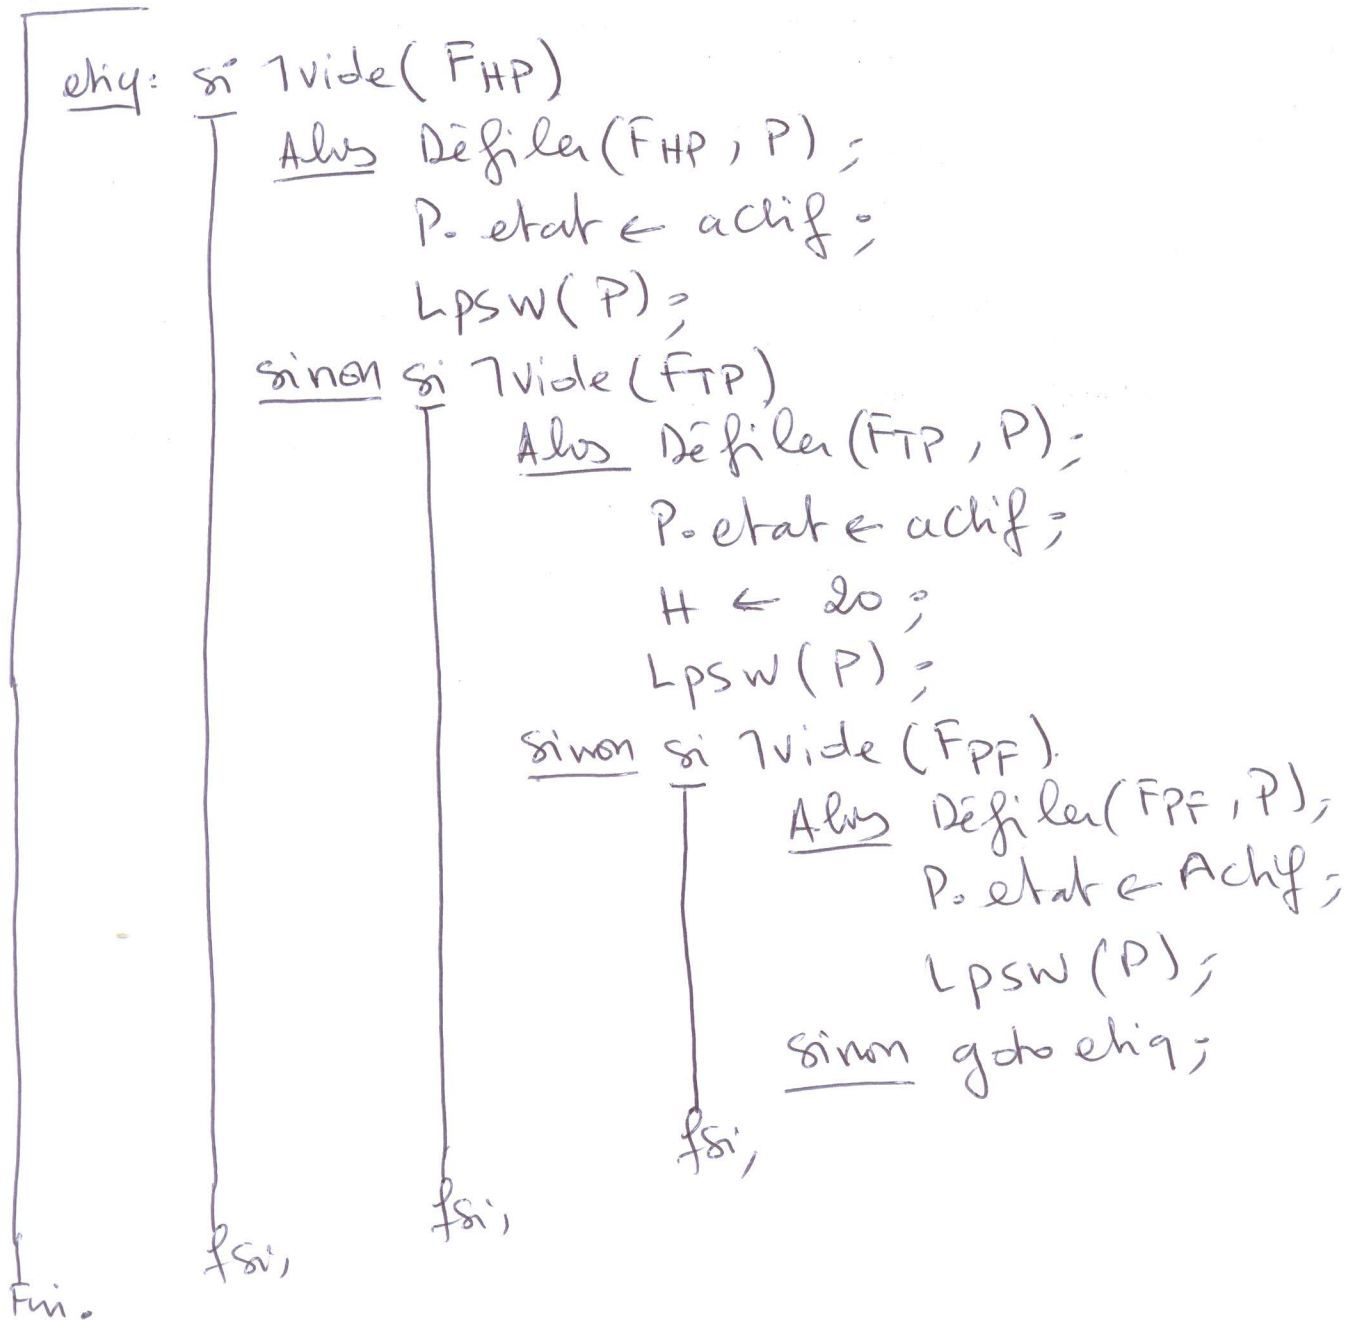 etiq: si ┐vide(FHP)
Alors Défiler(FHP, P);
P.etat ← actif;
Lpsw(P);
sinon si ┐vide(FTP)
Alors Défiler(FTP, P);
P.etat ← actif;
H ← 20;
Lpsw(P);
sinon si ┐vide(FPF)
Alors Défiler(FPF, P);
P.etat ← Actif;
Lpsw(P);
sinon goto etiq;
fsi,
fsi,
fsi,
Fin.